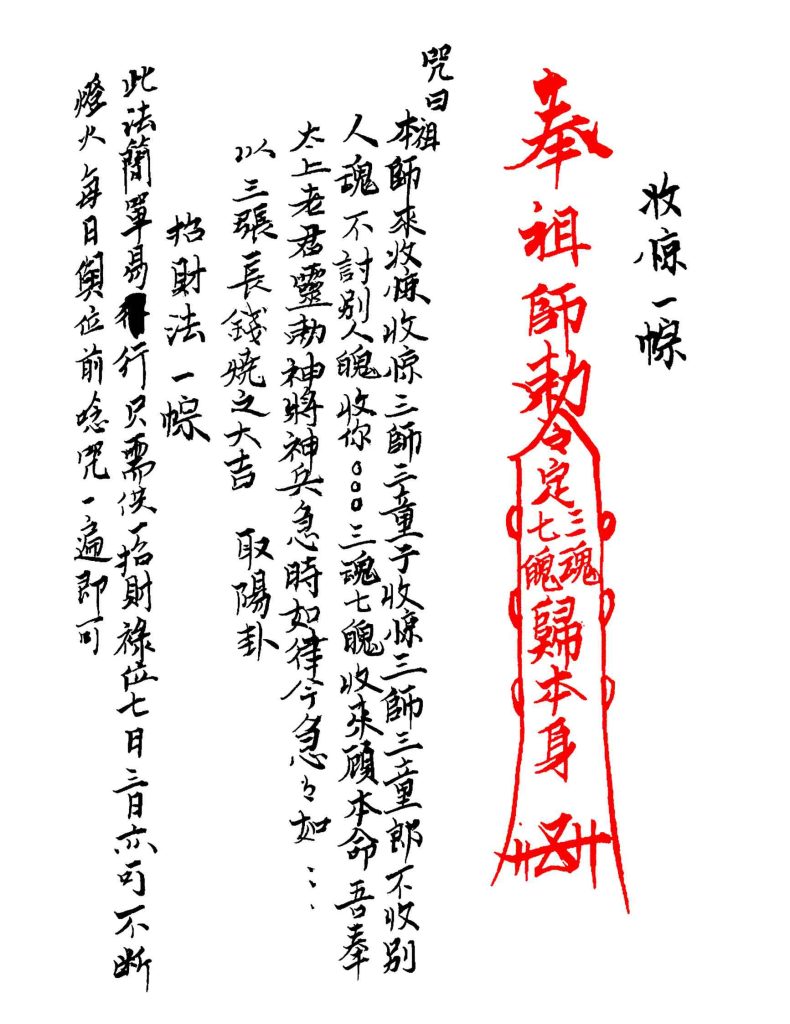 收惊一宗
奉祖師勅令定三魂七魄歸本身
咒曰
本祖師來收惊收惊三師三童子收惊三師三童郎不收別
人魂不討別人魄收你○○○三魂七魄收來顧本命吾奉
太上老君靈勅神將神兵急時如律令急々如：：
以三張長錢燒之大吉 取陽卦
招財法一宗
此法簡單易行只需供一招財祿位七日三日亦可不断
燈火每日與位前唸咒一遍即可